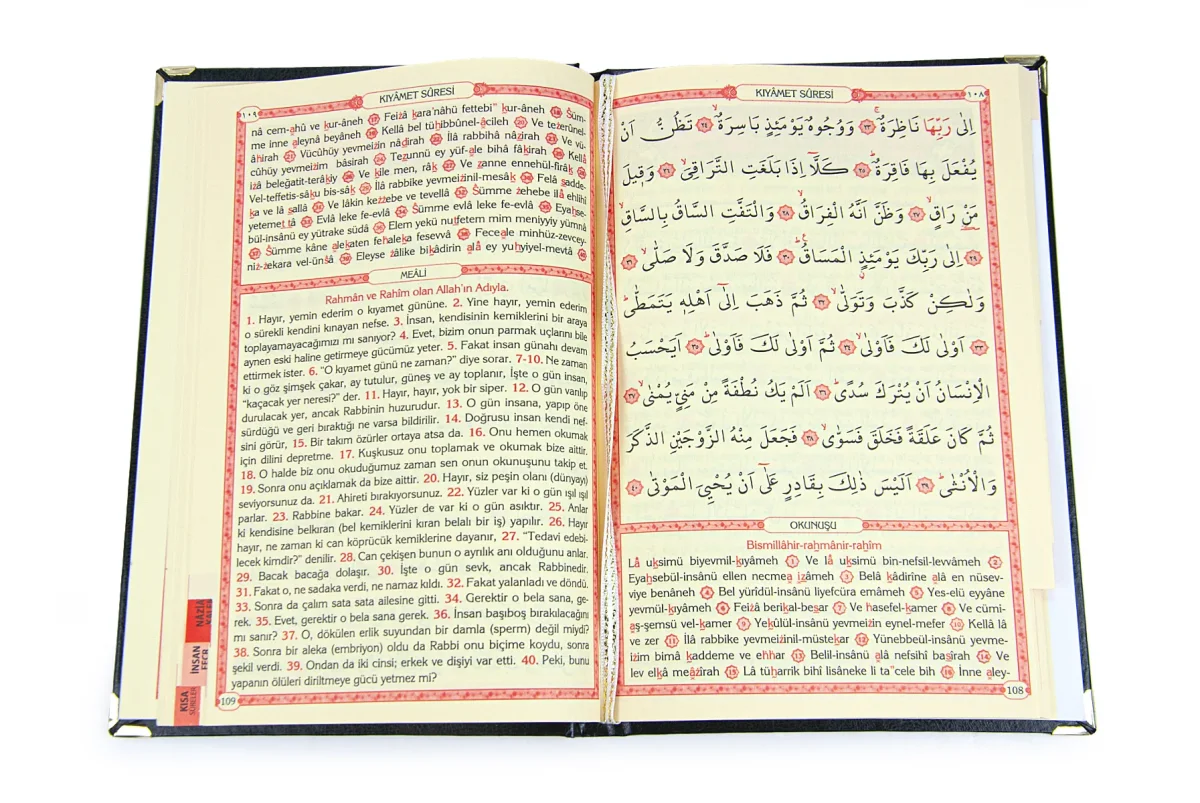 KIYÂMET SÛRESİ
١٠٨
اِلٰى رَبِّهَا نَاظِرَةٌۚ ﴿٢٣﴾ وَوُجُوهٌ يَوْمَئِذٍ بَاسِرَةٌۙ ﴿٢٤﴾ تَظُنُّ اَنْ
يُفْعَلَ بِهَا فَاقِرَةٌۜ ﴿٢٥﴾ كَلَّٓا اِذَا بَلَغَتِ التَّرَاقِيَۙ ﴿٢٦﴾ وَق۪يلَ
مَنْ رَاقٍۙ ﴿٢٧﴾ وَظَنَّ اَنَّهُ الْفِرَاقُۙ ﴿٢٨﴾ وَالْتَفَّتِ السَّاقُ بِالسَّاقِۙ
﴿٢٩﴾ اِلٰى رَبِّكَ يَوْمَئِذٍ الْمَسَاقُۜ ﴿٣٠﴾ فَلَا صَدَّقَ وَلَا صَلّٰىۙ ﴿٣١﴾
وَلٰكِنْ كَذَّبَ وَتَوَلّٰىۙ ﴿٣٢﴾ ثُمَّ ذَهَبَ اِلٰٓى اَهْلِه۪ يَتَمَطّٰىۜ
﴿٣٣﴾ اَوْلٰى لَكَ فَاَوْلٰىۙ ﴿٣٤﴾ ثُمَّ اَوْلٰى لَكَ فَاَوْلٰىۜ ﴿٣٥﴾ اَيَحْسَبُ
الْاِنْسَانُ اَنْ يُتْرَكَ سُدًىۜ ﴿٣٦﴾ اَلَمْ يَكُ نُطْفَةً مِنْ مَنِيٍّ يُمْنٰىۙ ﴿٣٧﴾
ثُمَّ كَانَ عَلَقَةً فَخَلَقَ فَسَوّٰىۙ ﴿٣٨﴾ فَجَعَلَ مِنْهُ الزَّوْجَيْنِ الذَّكَرَ
وَالْاُنْثٰىۜ ﴿٣٩﴾ اَلَيْسَ ذٰلِكَ بِقَادِرٍ عَلٰٓى اَنْ يُحْيِيَ الْمَوْتٰى ﴿٤٠﴾
OKUNUŞU
Bismillâhir-rahmânir-rahîm
Lâ uksimü biyevmil-kıyâmeh 1 Ve lâ uksimü bin-nefsil-levvâmeh 2
Eyahsebül-insânü ellen necmea ızâmeh 3 Belâ kâdirîne alâ en nüsev-
viye benâneh 4 Bel yürîdül-insânü liyefcüra emâmeh 5 Yes-elü eyyâne
yevmül-kıyâmeh 6 Feizâ berikal-besar 7 Ve hasefel-kamer 8 Ve cümi-
aş-şemsü vel-kamer 9 Yekûlül-insânü yevmeizin eynel-mefer 10 Kellâ lâ
ve zer 11 İlâ rabbike yevmeizinil-müstekar 12 Yünebbeül-insânü yevme-
izim bimâ kaddeme ve ehhar 13 Belil-insânü alâ nefsihî basîrah 14 Ve
lev elkâ meâzîrah 15 Lâ tüharrik bihî lisâneke li ta"cele bih 16 İnne aley-
108
KIYÂMET SÛRESİ
١٠٩
nâ cem-ahû ve kur-âneh 17 Feizâ kara'nâhü fettebi" kur-âneh 18 Süm-
me inne aleynâ beyâneh 19 Kellâ bel tühibbûnel-âcileh 20 Ve tezerûnel-
âhirah 21 Vücûhüy yevmeizin nâdirah 22 İlâ rabbihâ nâzirah 23 Ve vü-
cûhüy yevmeizim bâsirah 24 Tezunnü ey yüf-ale bihâ fâkirah 25 Kellâ
izâ beleğatit-terâkıy 26 Ve kîle men, râk 27 Ve zanne ennehül-firâk 28
Vel-teffetis-sâku bis-sâk 29 İlâ rabbike yevmeizinil-mesâk 30 Felâ sadde-
ka ve lâ sallâ 31 Ve lâkin kezzebe ve tevellâ 32 Sümme zehebe ilâ ehlihî
yetemettâ 33 Evlâ leke fe-evlâ 34 Sümme evlâ leke fe-evlâ 35 Eyahse-
bül-insânü ey yütrake südâ 36 Elem yekü nutfetem mim meniyyiy yümnâ
37 Sümme kâne alekaten fehaleka fesevvâ 38 Feceale minhüz-zevcey-
niz-zekara vel-ünsâ 39 Eleyse zâlike bikâdirin alâ ey yuhyiyel-mevtâ 40
MEÂLİ
Rahmân ve Rahîm olan Allah'ın Adıyla.
1. Hayır, yemin ederim o kıyamet gününe. 2. Yine hayır, yemin ederim
o sürekli kendini kınayan nefse. 3. İnsan, kendisinin kemiklerini bir araya
toplayamayacağımızı mı sanıyor? 4. Evet, bizim onun parmak uçlarını bile
aynen eski haline getirmeye gücümüz yeter. 5. Fakat insan günahı devam
ettirmek ister. 6. "O kıyamet günü ne zaman?" diye sorar. 7-10. Ne zaman
ki o göz şimşek çakar, ay tutulur, güneş ve ay toplanır, İşte o gün insan,
"kaçacak yer neresi?" der. 11. Hayır, hayır, yok bir siper. 12. O gün varılıp
durulacak yer, ancak Rabbinin huzurudur. 13. O gün insana, yapıp öne
sürdüğü ve geri bıraktığı ne varsa bildirilir. 14. Doğrusu insan kendi nef-
sini görür, 15. Bir takım özürler ortaya atsa da. 16. Onu hemen okumak
için dilini depretme. 17. Kuşkusuz onu toplamak ve okumak bize aittir.
18. O halde biz onu okuduğumuz zaman sen onun okunuşunu takip et.
19. Sonra onu açıklamak da bize aittir. 20. Hayır, siz peşin olanı (dünyayı)
seviyorsunuz da. 21. Ahireti bırakıyorsunuz. 22. Yüzler var ki o gün ışıl ışıl
parlar. 23. Rabbine bakar. 24. Yüzler de var ki o gün asıktır. 25. Anlar
ki kendisine belkıran (bel kemiklerini kıran belalı bir iş) yapılır. 26. Hayır
hayır, ne zaman ki can köprücük kemiklerine dayanır, 27. "Tedavi edebi-
lecek kimdir?" denilir. 28. Can çekişen bunun o ayrılık anı olduğunu anlar.
29. Bacak bacağa dolaşır. 30. İşte o gün sevk, ancak Rabbinedir.
31. Fakat o, ne sadaka verdi, ne namaz kıldı. 32. Fakat yalanladı ve döndü.
33. Sonra da çalım sata sata ailesine gitti. 34. Gerektir o bela sana, ge-
rek. 35. Evet, gerektir o bela sana gerek. 36. İnsan başıboş bırakılacağını
mı sanır? 37. O, dökülen erlik suyundan bir damla (sperm) değil miydi?
38. Sonra bir aleka (embriyon) oldu da Rabbi onu biçime koydu, sonra
şekil verdi. 39. Ondan da iki cinsi; erkek ve dişiyi var etti. 40. Peki, bunu
yapanın ölüleri diriltmeye gücü yetmez mi?
109
İNSAN
FECR
KISA
SURELER